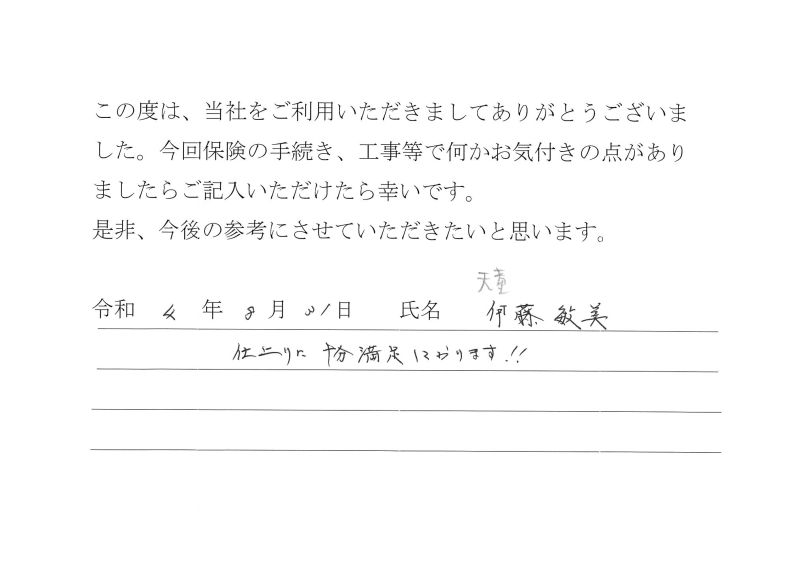 この度は、当社をご利用いただきましてありがとうございま
した。今回保険の手続き、工事等で何かお気付きの点があり
ましたらご記入いただけたら幸いです。
是非、今後の参考にさせていただきたいと思います。
天童
令和 4 年 8 月 31 日 氏名 伊藤 敏美
仕上りに 十分 満足 しております!!